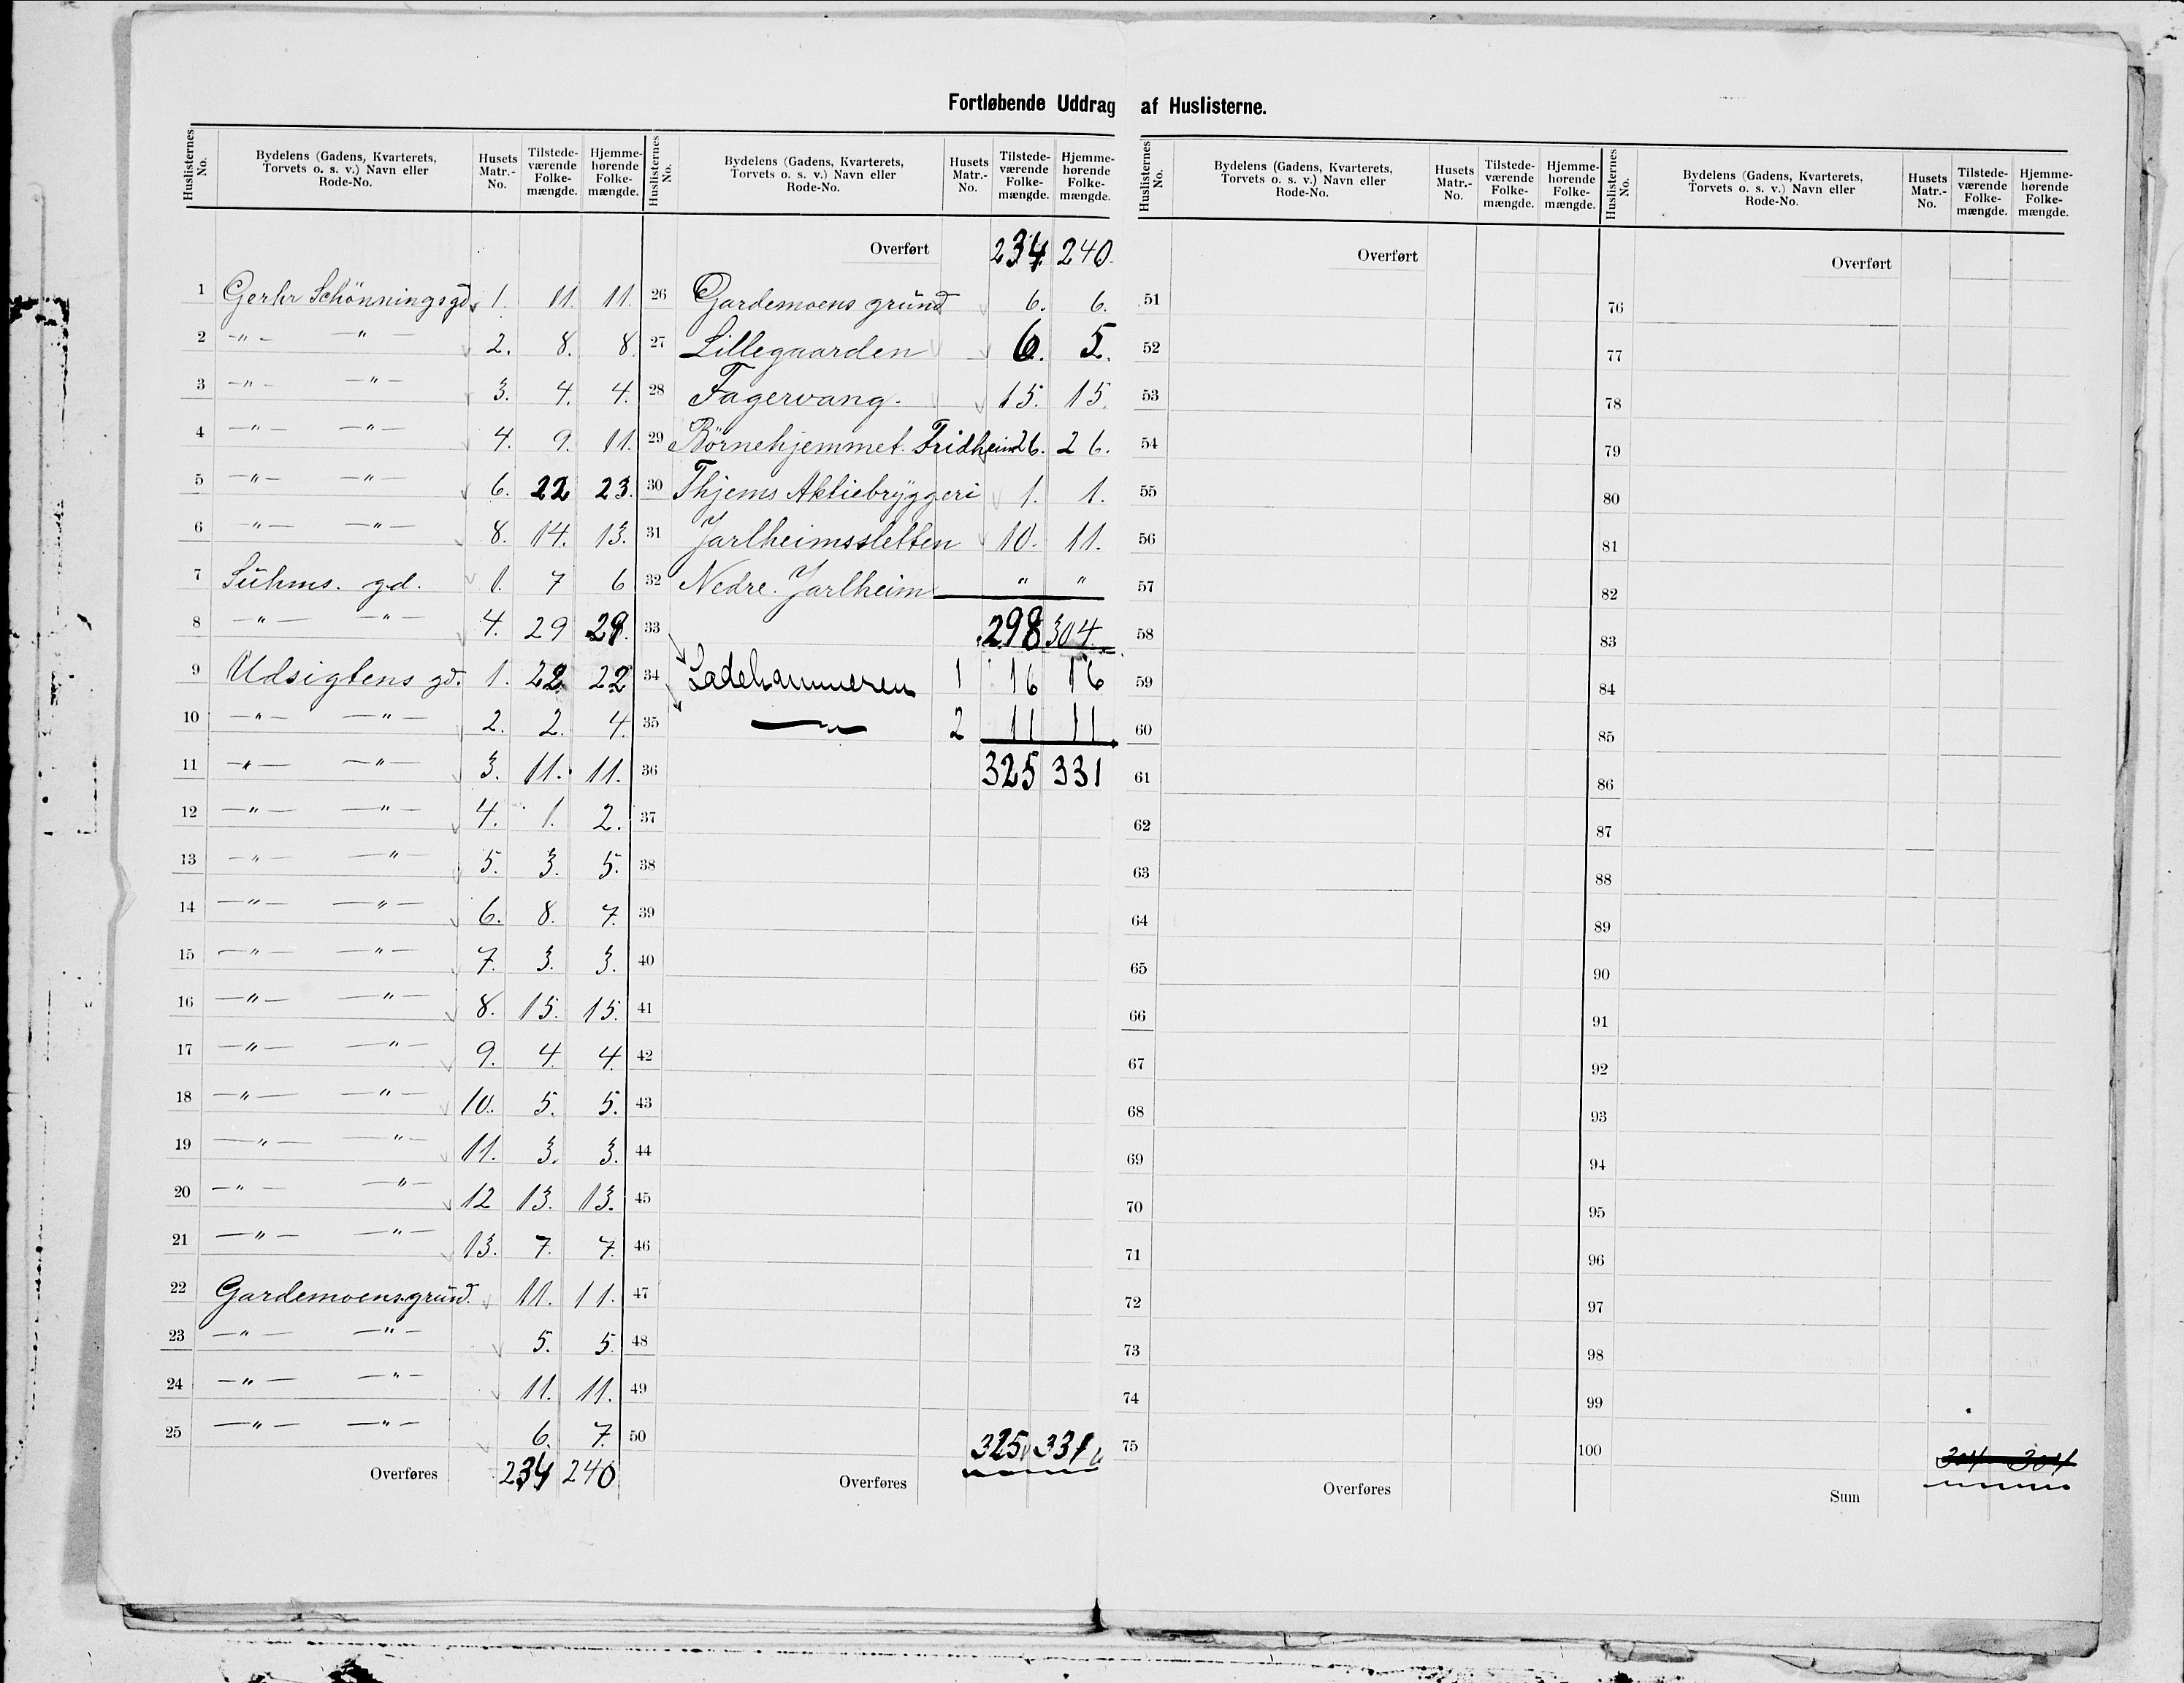 Fortløbende Uddrag af Huslisterne.
Huslisternes No. Bydelens (Gadens, Kvarterets, Torvets o. s. v.) Navn eller Rode-No. Husets Matr.-No. Tilstede-værende Folke-mængde. Hjemme-hørende Folke-mængde.
1 Gerhr Schönningsgd. 1. 11. 11.
2 -"- -"- 2. 8. 8.
3 -"- -"- 3. 4. 4.
4 -"- -"- 4. 9. 11.
5 -"- -"- 6. 22 23.
6 -"- -"- 8. 14. 13.
7 Suhms. gd. 1. 7 6
8 -"- -"- 4. 29 29.
9 Udsigtens gd. 1. 22 22
10 -"- -"- 2. 2. 4.
11 -"- -"- 3. 11. 11.
12 -"- -"- 4. 1. 2.
13 -"- -"- 5. 3. 5.
14 -"- -"- 6. 8. 7.
15 -"- -"- 7. 3. 3.
16 -"- -"- 8. 15. 15.
17 -"- -"- 9. 4. 4.
18 -"- -"- 10. 5. 5.
19 -"- -"- 11. 3. 3.
20 -"- -"- 12 13. 13.
21 -"- -"- 13. 7. 7.
22 Gardemoensgrund. 11. 11.
23 -"- -"- 5. 5.
24 -"- -"- 11. 11.
25 -"- -"- 6. 7.
Overføres 234 240
Huslisternes No. Bydelens (Gadens, Kvarterets, Torvets o. s. v.) Navn eller Rode-No. Husets Matr.-No. Tilstede-værende Folke-mængde. Hjemme-hørende Folke-mængde.
Overført 234. 240.
26 Gardemoens grund 6. 6.
27 Lillegaarden 6. 5.
28 Fagervang. 15. 15.
29 Börnehjemmet. Fridheim 26. 26.
30 Thjems Aktiebryggeri 1. 1.
31 Jarlheimssletten 10. 11.
32 Nedre. Jarlheim " "
33 298 304
34 Ladehammeren 1 16 16
35 -"- 2 11 11
36 325 331
37
38
39
40
41
42
43
44
45
46
47
48
49
50 325 331
Overføres
Huslisternes No. Bydelens (Gadens, Kvarterets, Torvets o. s. v.) Navn eller Rode-No. Husets Matr.-No. Tilstede-værende Folke-mængde. Hjemme-hørende Folke-mængde.
Overført
51
52
53
54
55
56
57
58
59
60
61
62
63
64
65
66
67
68
69
70
71
72
73
74
75
Overføres
Huslisternes No. Bydelens (Gadens, Kvarterets, Torvets o. s. v.) Navn eller Rode-No. Husets Matr.-No. Tilstede-værende Folke-mængde. Hjemme-hørende Folke-mængde.
Overført
76
77
78
79
80
81
82
83
84
85
86
87
88
89
90
91
92
93
94
95
96
97
98
99
100 304 304
Sum